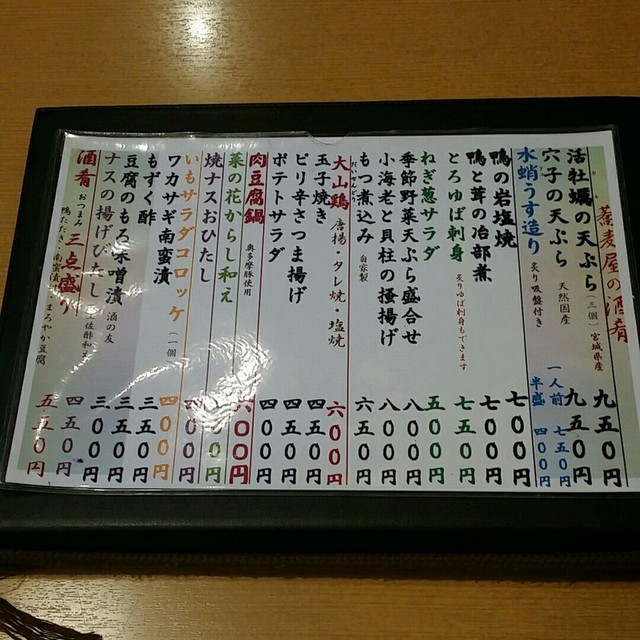 蕎麦屋の酒肴
活牡蠣の天ぷら（三個）宮城県産 九五〇円
穴子の天ぷら 天然国産 九五〇円
水蛸うす造り 炙り吸盤付き 一人前 七五〇円 半盛 四〇〇円
鴨の岩塩焼 七〇〇円
鴨と茸の治部煮 七〇〇円
とろゆば刺身 炙りゆば刺身もできます 七五〇円
ねぎ葱サラダ 五〇〇円
季節野菜天ぷら盛合せ 八〇〇円
小海老と貝柱の掻揚げ 八〇〇円
もつ煮込み 自家製 六五〇円
大山鶏 だいせんどり 唐揚・タレ焼・塩焼 六〇〇円
玉子焼き 四五〇円
ピリ辛さつま揚げ 四五〇円
ポテトサラダ 四〇〇円
肉豆腐鍋 奥多摩豚使用 六〇〇円
菜の花からし和え 四〇〇円
焼ナスおひたし 四〇〇円
いもサラダコロッケ（一個） 四〇〇円
ワカサギ南蛮漬 四〇〇円
もずく酢 三五〇円
豆腐のもろ味噌漬 酒の友 三五〇円
ナスの揚げびたし 三〇〇円
酒肴 おつまみ 三点盛り 四五〇円
鴨たたき・南蛮漬・まろやか豆腐 五五〇円